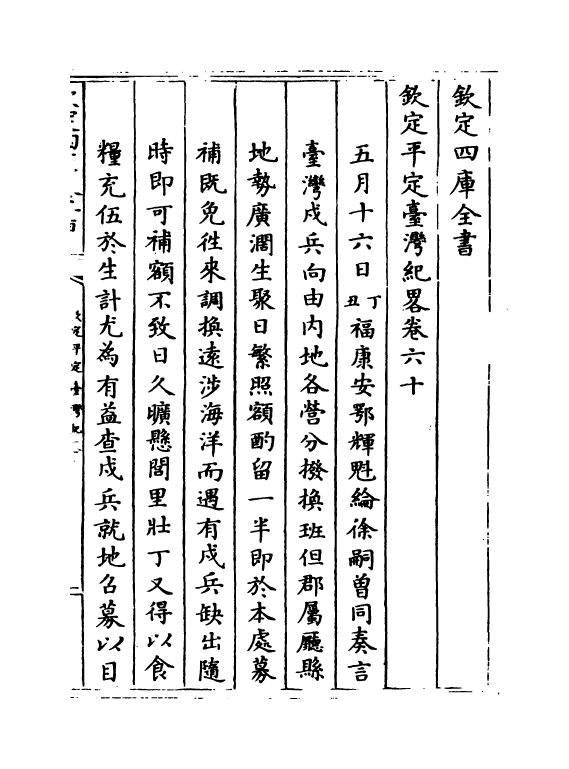 欽定四庫全書
欽定平定臺灣紀畧卷六十
五月十六日丁丑福康安鄂輝魁綸徐嗣曾同奏言
臺灣戍兵向由內地各營分撥換班但郡屬廳縣
地勢廣濶生聚日繁照額酌留一半即於本處募
補既免徃來調換遠涉海洋而遇有戍兵缺出隨
時即可補額不致日久曠懸閭里壯丁又得以食
糧充伍於生計尤為有益查戍兵就地召募以目